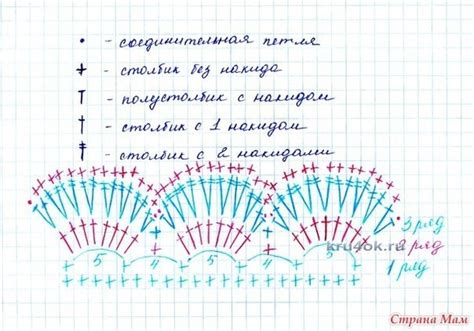 • - соединительная петля
+ - столбик без накида
т - полустолбик с накидом
† - столбик с 1 накидом
‡ - столбик с 2 накидами
3 ряд
kru4ok.ru
2 ряд
5 4 5 4 5
1 ряд
Страна Мам